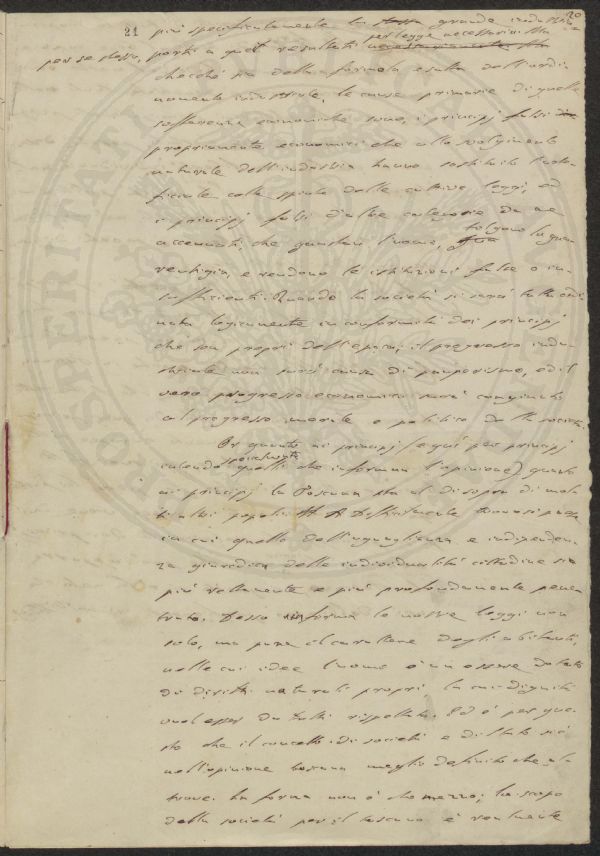 20
21
più specificatamente la stessa grande industria
per se stessa, porti a questi resultati per legge necessaria. Ma
checchè sia della formola esatta dell'ordi
namento industriale, le cause primarie di quelle
sofferenze economiche sono, i principj falsi
propriamente economici che allo svolgimento
naturale dell'industria hanno sostituito l'arti
ficiale colla spinta delle cattive leggi, ed
i principj falsi d'altre categorie da me
accennati, che guastan l'uomo, tolgono la guar
rentigia, e rendono le istituzioni false o in
sufficienti. Quando la società si sarà tutta ordi
nata logicamente in conformità dei principj
che son propri dell'epoca, il progresso indu
striale non sarà causa di pauperismo, ed il
vero progresso economico sarà congiunto
col progresso morale e politico della società.
Or quanto ai principj (e qui per principj
intendo specialmente quelli che informan l'opinione) quanto
ai principj la Toscana sta al di sopra di mol
ti altri popoli. Difficilmente trovasi paese
in cui quello dell'uguaglianza e indipenden
za giuridica delle individualità cittadine sia
più rettamente e più profondamente pene
trato. Desso informa le nostre leggi non
solo, ma pure il carattere degli abitanti,
nelle cui idee l'uomo è un essere dotato
di diritti naturali propri, la cui dignità
vuol esser da tutti rispettata. Ed è per que
sto che il concetto di società e di Stato si è
nell'opinione toscana meglio definito che al
trove. La forma non è che mezzo; lo scopo
della società per il toscano è realmente